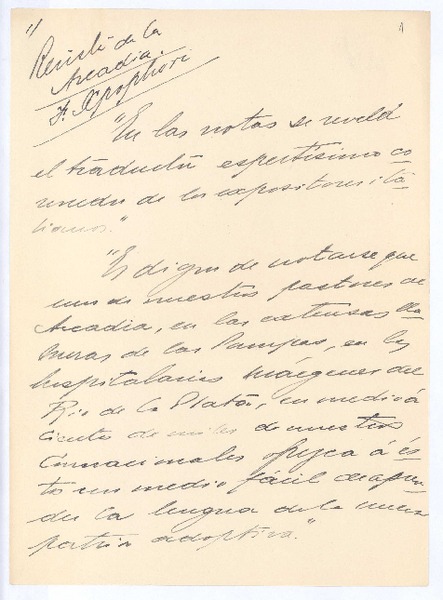 Revista de la
Arcadia.
F.
"En las notas se revela
el traductor espertísimo co-
nocedor de los expositores ita-
lianos."
"Es digno de notarse que
uno de nuestros pastores de
Arcadia, en las extensas lla-
nuras de las Pampas, en las
hospitalarias márgenes del
Rio de la Plata, en medio á
cientos de miles de nuestros
connacionales ofrezca á és-
tos un medio fácil de apren-
der la lengua de la nueva
patria adoptiva."